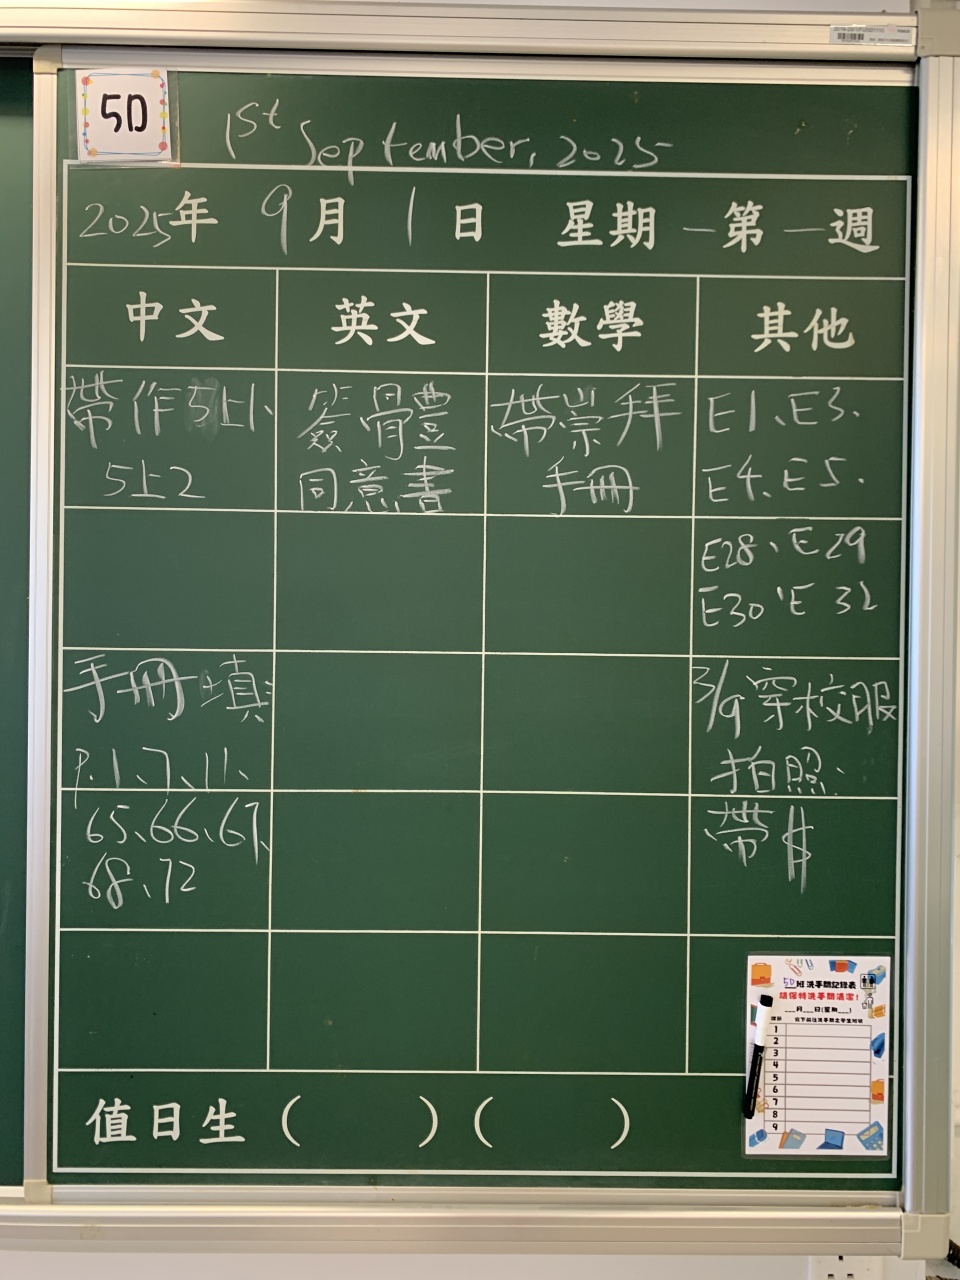 5D
1st September, 2025
2025年 9月 1日 星期一第一週
中文 英文 數學 其他
帶作5上1、
5上2
簽骨豐
同意書
帶崇拜
手冊
E1、E3、
E4、E5、
E28、E29
E30、E32
手冊填:
P.1、7、11、
3/9穿校服
拍照、
65、66、67、
68、72
帶$
5D班洗手間記錄表
請保持洗手間清潔!
___月___日(星期___)
1
2
3
4
5
6
7
8
9
值日生 ( ) ( )